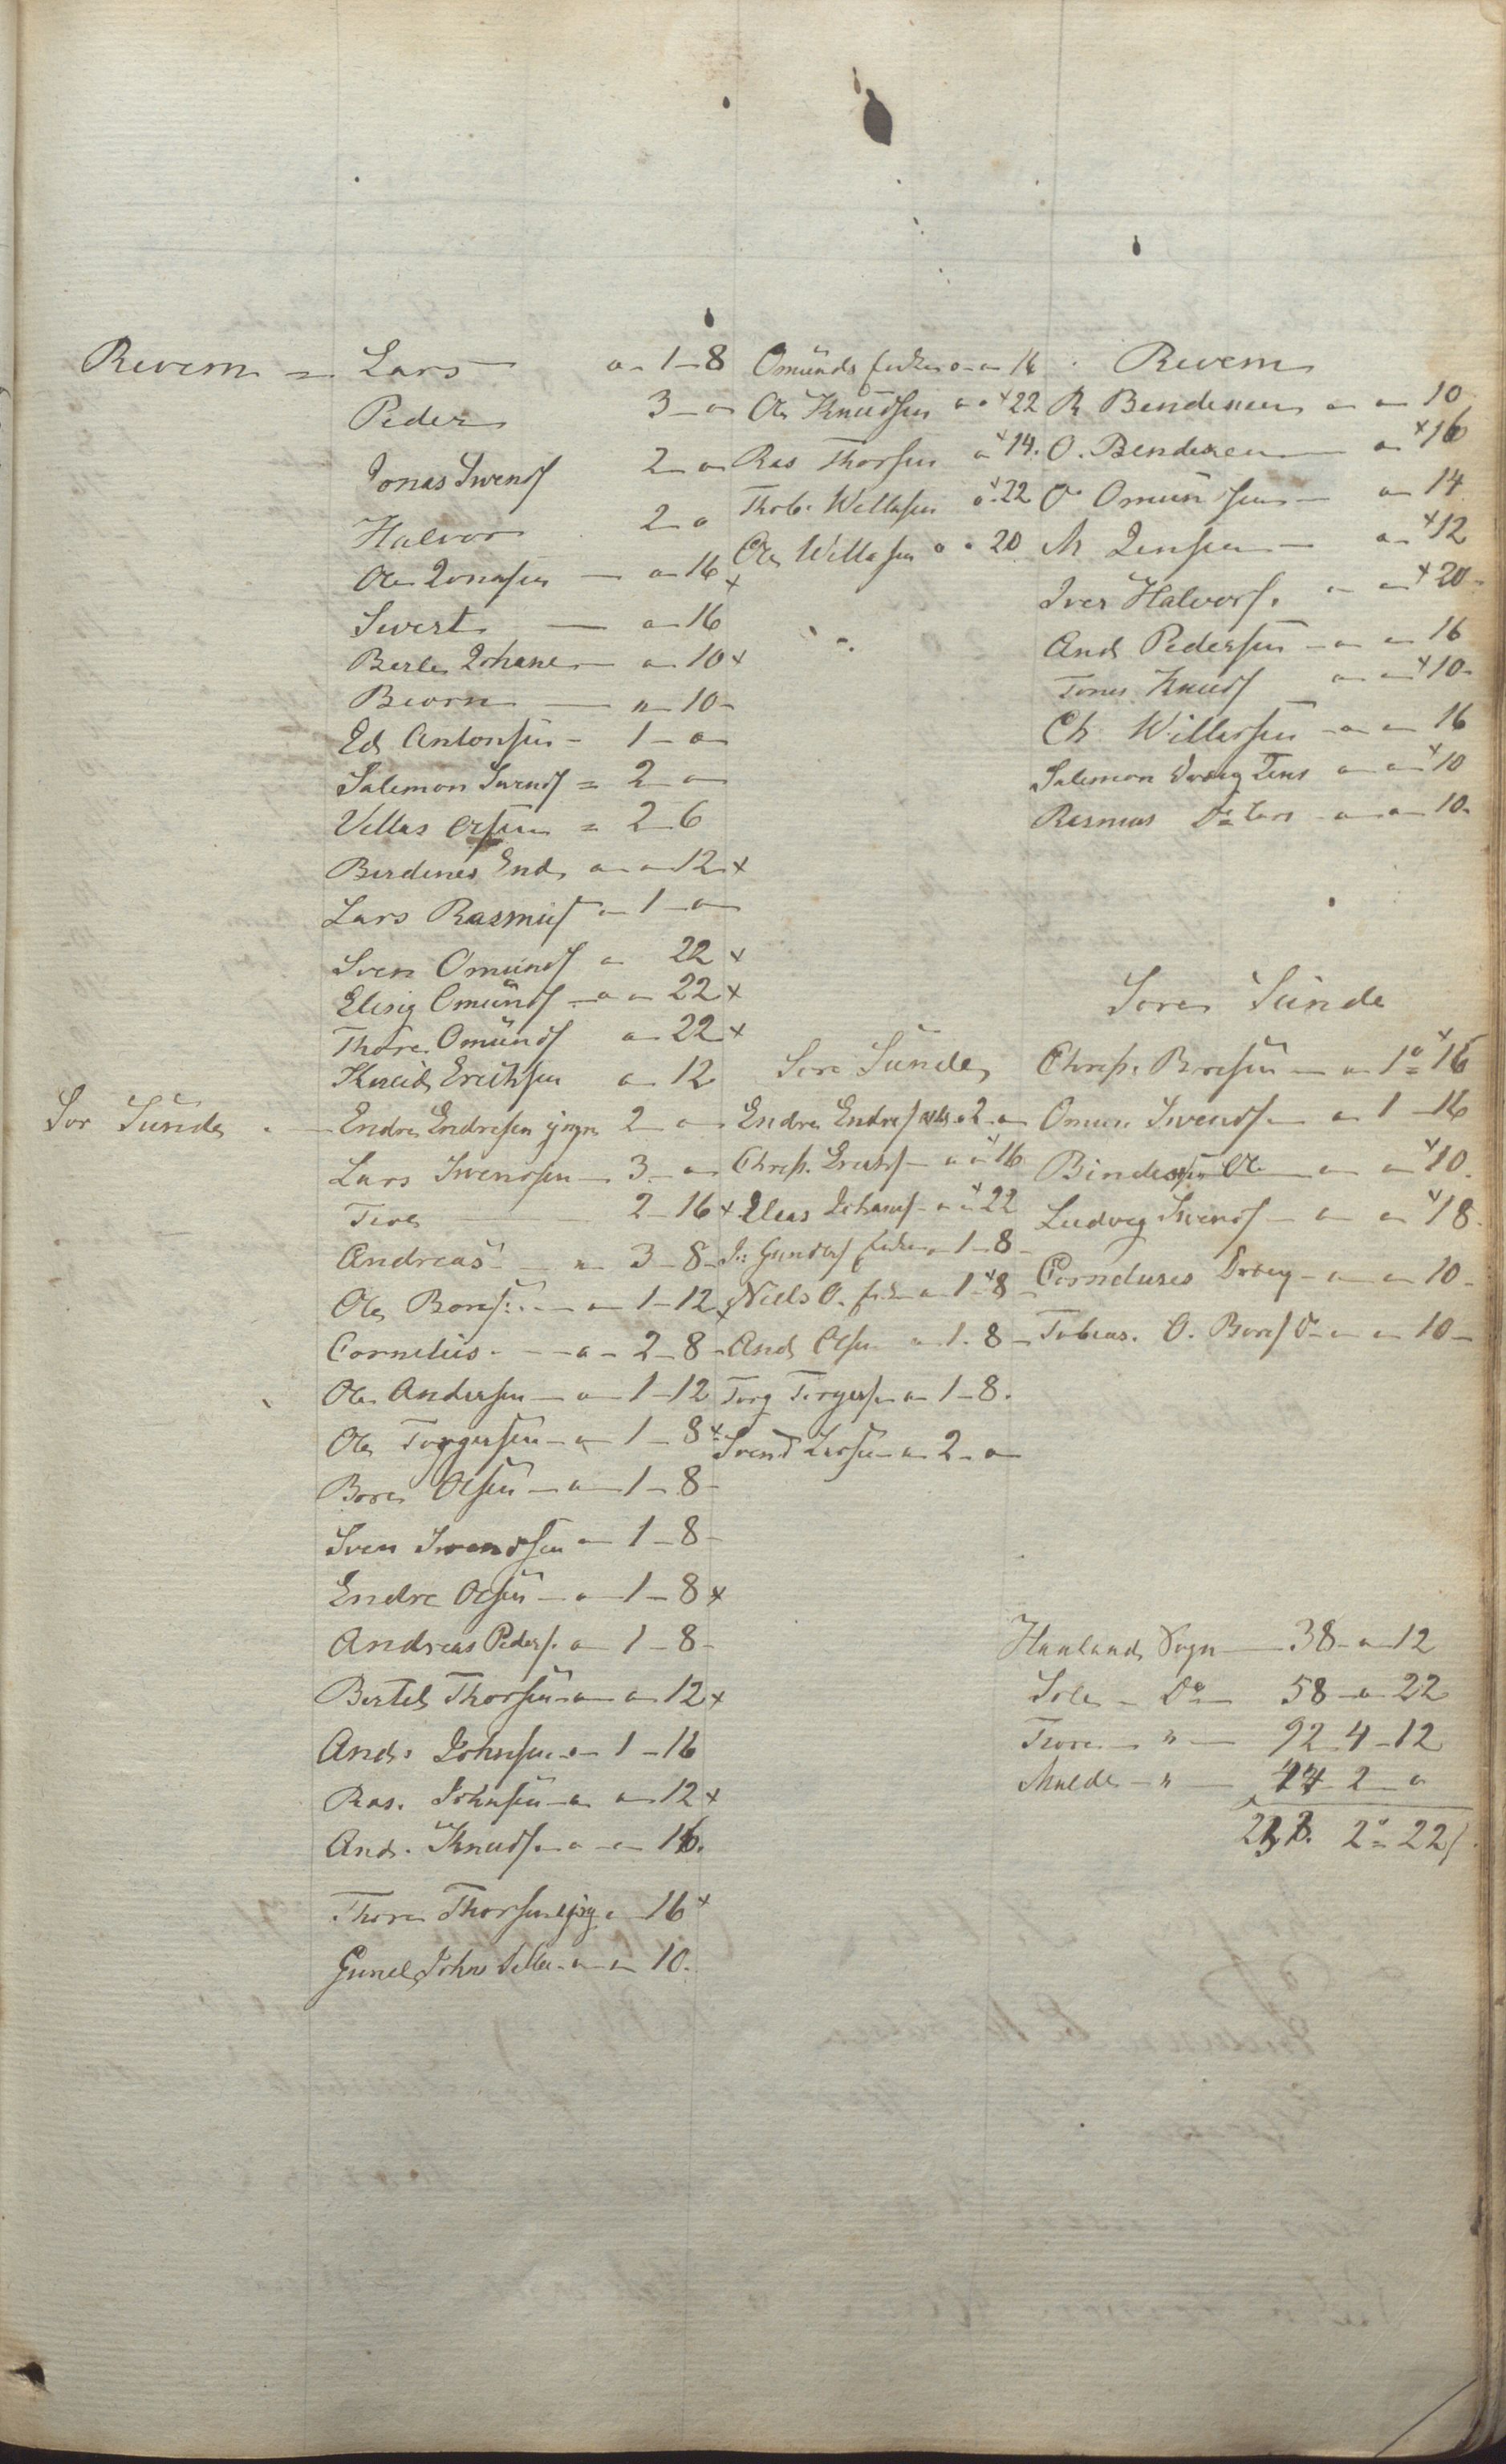 Revem = Lars a 1 - 8
Peder 3 - a
Jonas Swends 2 - a
Halvor 2 a
Ole Jonasen - a 16 x
Sivert - a 16
Berle Johane - a 10 x
Biorn - a 10 -
Ed Antonsen - 1 - a
Salemon Swends = 2 - a
Villas = 2 - 6
Berdines End. a - a 12 x
Lars Rasmus - a - 1 - a
Sven Omunds a 22 x
Elisig Omunds - a - a - 22 x
Thore Omunds a - 22 x
Knud Erichsen a - 12
Sør Sunde - Endre Endresen yngre 2 - a
Lars Swendsen - 3 - a
2 - 16 x
Andreas - a - 3 - 8 -
Ole Bores: - a - 1 - 12 x
Cornelius - a - 2 - 8 -
Ole Andersen - a - 1 - 12
Ole Torgersen - a - 1 - 8 x
Bore Olsen - a - 1 - 8 -
Sven Swendsen a - 1 - 8 -
Endre Olsen - a - 1 - 8 x
Andreas Peders. a - 1 - 8 -
Bertel Thorsen - a - a - 12 x
And. Johnsen - a - 1 - 16
Ras. Johnsen - a - a - 12 x
And. Knuds. - a - a - 16.
Thore Thorsen yng a - 16 x
Gunel Johns - a - a - 10.
Omunds a - a - 16
Ole Knudsen a - a x 22
Ras Thorsen a x 14.
Thob. Willasen a x 22
Ole Willasen a a 20
Sore Sunde
Endre Endres 2 - a
Chrest. Erichs - a - a x 16
Elias Johanes - a - a x 22
J: Gunders a - 1 - 8 -
Niels O. a - 1 - x 8
And Olsen a - 1 - 8 -
Torg Torgers - a - 1 - 8.
Svend Larsen - a - 2 - a
Revem
R Bendixen a - a - 10
O. Bendixen a - x 16
O Omundsen - a - 14
M Jensen - a - x 12
Iver Halvors. a - a x 20 -
And Pedersen - a - a - 16
Tønes Knuds a - a x 10 -
Ch. Willassen - a - a - 16
Salemon Dreng a - a x 10
Rasmus Do a - a - 10.
Sore Sunde
Chrest. Boresen - a - 1 a = x 16
Omun Swends. - a - 1 - 16
Ole - a - a x 10.
Ludvig Swends - a - a x 18.
Cornelius Dreng - a - a - 10 -
Tobias. O. Bores Do - a - a - 10 -
Haaland Sogn - 38 - a - 12
Sole - Do - 58 - a - 22
Thore - " - 92 - 4 - 12
Malde - " - 44 - 2 - a
2 a = 22 /.